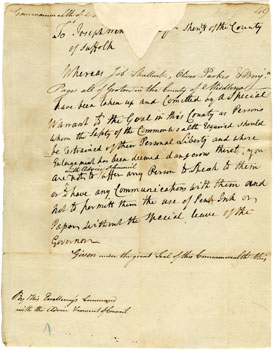 Commonwealth
To Joseph Sheriff of the County
of Suffolk
Whereas Job Shattuck, Oliver Parker & Benj.n
Page all of Groton in the County of Middlesex
have been taken up and Comitted by a Special
Warrant to the Goal in this County as Persons
whom the Safety of the Commonwealth Required should
be restrained of their Personal Liberty and whose
Enlargement has been deemed dangerous thereto, you
with Advice of Council
are not to suffer any Person to Speak to them
or have any Communication with them and
not to permit them the use of Pen, Ink or
Paper, without the Special leave of the
Governor
Given under the great Seal of this Commonwealth this
By His Excellency's Command
with the Advice of Council